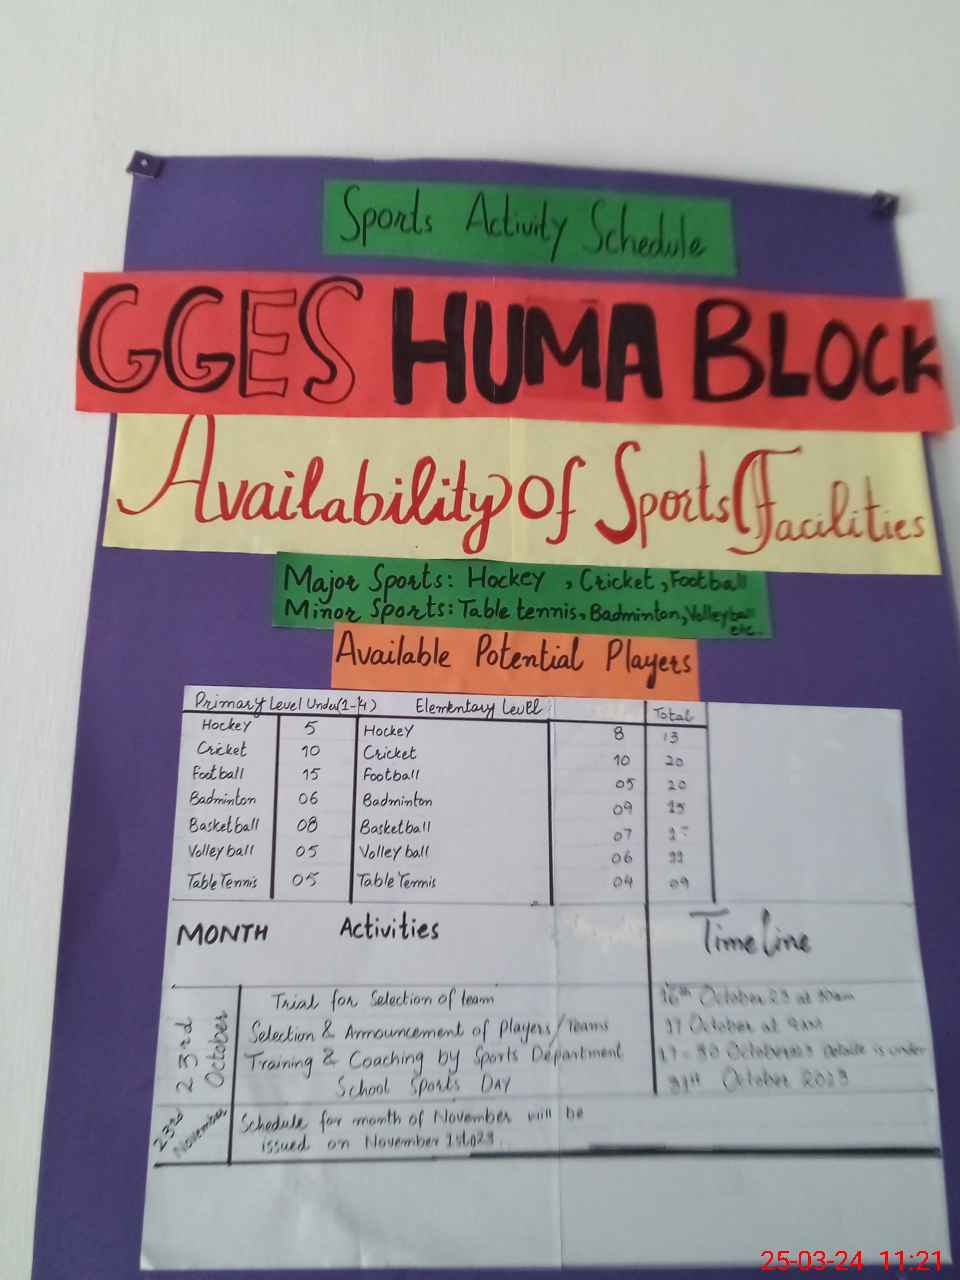 Sports Activity Schedule
GGES HUMA BLOCK
Availability Of Sports Facilities
Major Sports: Hockey , Cricket, Football
Minor Sports: Table tennis, Badminton, Volleyball
etc.
Available Potential Players
Primary Level Under(1-4) Elementary Level: Total
Hockey 5 Hockey 8 13
Cricket 10 Cricket 10 20
Football 15 Football 05 20
Badminton 06 Badminton 09 15
Basketball 08 Basketball 07
Volley ball 05 Volley ball 06 11
Table Tennis 05 Table Tennis 04 09
MONTH Activities Time line
23rd October
Trial for Selection of team 16th October 23 at
Selection & Announcement of Players/Teams 17 October at 9am
Training & Coaching by Sports Department 17-30 October Details is under
School Sports DAY 31st October 2023
23rd November
Schedule for month of November will be
issued on November
25-03-24 11:21